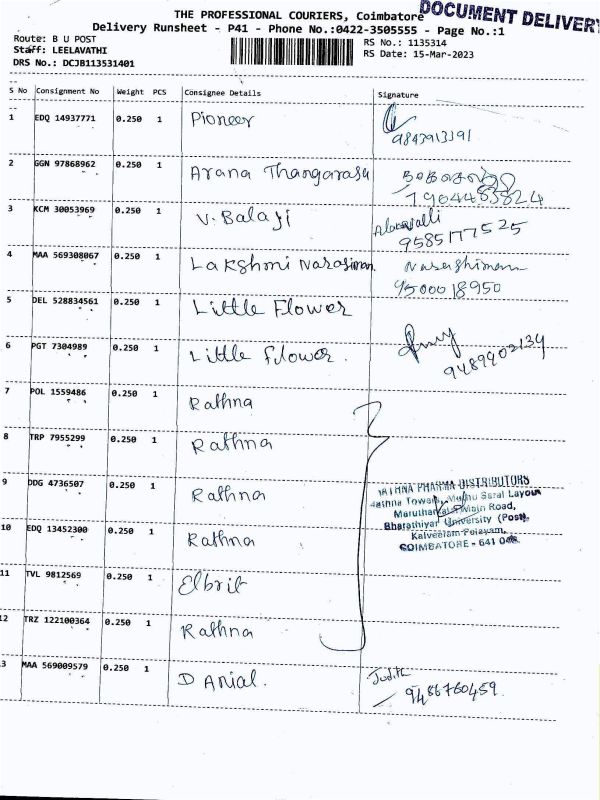 THE PROFESSIONAL COURIERS, Coimbatore
DOCUMENT DELIVERY
Delivery Runsheet - P41 - Phone No.:0422-3505555 - Page No.:1
Route: B U POST
RS No.: 1135314
Staff: LEELAVATHI
RS Date: 15-Mar-2023
DRS No.: DCJB113531401
S No Consignment No Weight PCS Consignee Details Signature
1 EDQ 14937771 0.250 1 Pioneer
9843913191
2 GGN 97868962 0.250 1 Arana Thangarasu
3 KCM 30053969 0.250 1 V. Balaji
9585177525
4 MAA 569308067 0.250 1 Lakshmi Narasiman.
9500018950
5 DEL 528834561 0.250 1 Little Flower
6 PGT 7304989 0.250 1 Little Flower.
9489902134
7 POL 1559486 0.250 1 Rathna
8 TRP 7955299 0.250 1 Rathna
9 DDG 4736507 0.250 1 Rathna
PHARMA DISTRIBUTORS
Layout
Road,
Bharathiyar University (Post),
Kalveeram Palayam,
COIMBATORE - 641
10 EDQ 13452300 0.250 1 Rathna
11 TVL 9812569 0.250 1 Elbrit
12 TRZ 122100364 0.250 1 Rathna
3 MAA 569009579 0.250 1 D Anial.
Judith
9486760459